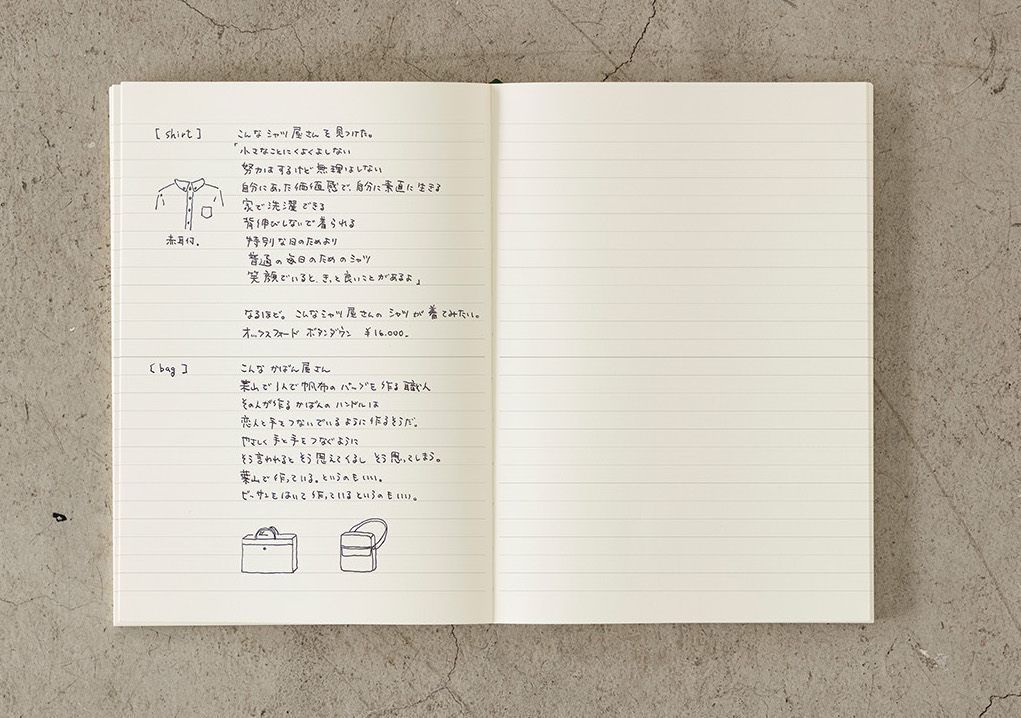 [ shirt ]
こんな シャツ屋さん を 見つけた。
「小さなことにくよくよしない
努力はするけど無理はしない
自分にあった価値感で、自分に素直に生きる
家で洗濯できる
背伸びしないで着られる
特別な日のためより
普通の毎日のためのシャツ
笑顔でいると、きっと良いことがあるよ」
赤耳付。
なるほど。 こんなシャツ屋さんの シャツが 着てみたい。
オックスフォード ボタンダウン ¥16.000.
[ bag ]
こんな かばん屋さん
葉山で1人で帆布の バッグを 作る 職人
その人が作る かばんの ハンドルは
恋人と手をつないでいるように 作るそうだ。
やさしく 手と手を つなぐように
そう言われると そう思えてくるし そう思ってしまう。
葉山で 作っている。というのもいい。
ビーサンをはいて 作っているというのもいい。